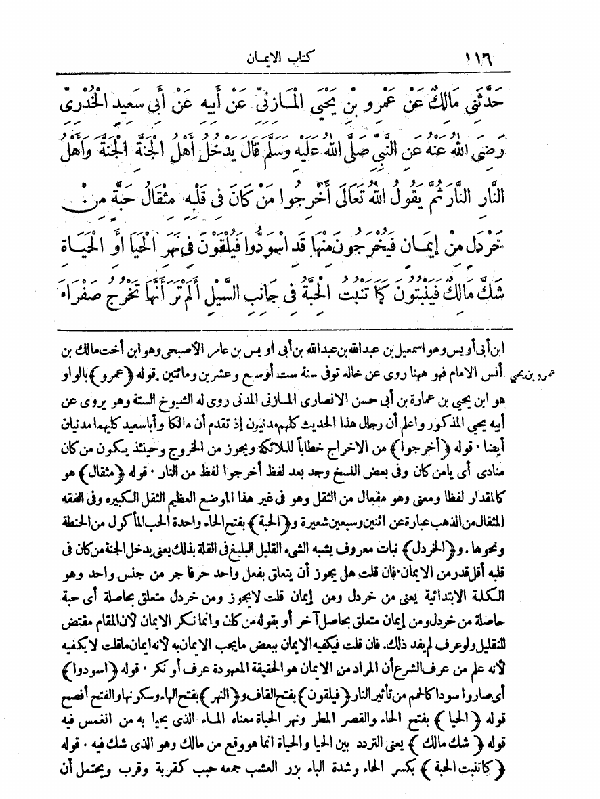 ١١٦ كتاب الايمان
حَدَّثَنِي مَالِكٌ عَنْ عَمْرِو بْنِ يَحْيَى الْمَازِنِيِّ عَنْ أَبِيهِ عَنْ أَبِي سَعِيدٍ الْخُدْرِيِّ
رَضِيَ اللهُ عَنْهُ عَنِ النَّبِيِّ صَلَّى اللهُ عَلَيْهِ وَسَلَّمَ قَالَ يَدْخُلُ أَهْلُ الْجَنَّةِ الْجَنَّةَ وَأَهْلُ
النَّارِ النَّارَ ثُمَّ يَقُولُ اللهُ تَعَالَى أَخْرِجُوا مَنْ كَانَ فِي قَلْبِهِ مِثْقَالُ حَبَّةٍ مِنْ
خَرْدَلٍ مِنْ إِيمَانٍ فَيُخْرَجُونَ مِنْهَا قَدِ اسْوَدُّوا فَيُلْقَوْنَ فِي نَهَرِ الْحَيَا أَوِ الْحَيَاةِ
شَكَّ مَالِكٌ فَيَنْبُتُونَ كَمَا تَنْبُتُ الْحِبَّةُ فِي جَانِبِ السَّيْلِ أَلَمْ تَرَ أَنَّهَا تَخْرُجُ صَفْرَاءَ
ابن أبى أويس وهو اسمعيل بن عبدالله بن عبدالله بن أبى اويس بن عامر الاصبحى وهو ابن أخت مالك بن
أنس الامام فهو ههنا روى عن خاله توفى سنة ست أوسبع وعشرين ومائتين. قوله ﴿عمرو﴾ بالواو
عمرو بن يحيى
هو ابن يحيى بن عمارة بن أبى حسن الانصارى المازنى المدنى روى له الشيوخ الستة وهو يروى عن
أبيه يحيى المذكور واعلم أن رجال هذا الحديث كلهم مدنيون إذ تقدم أن مالكا وأبا سعيد كليهما مدنيان
أيضا. قوله ﴿أخرجوا﴾ من الاخراج خطابا للملائكة ويجوز من الخروج وحينئذ يكون من كان
منادى أى يامن كان وفى بعض النسخ وجد بعد لفظ أخرجوا لفظ من النار. قوله ﴿مثقال﴾ هو
كالمقدار لفظا ومعنى وهو مفعال من الثقل وهو فى غير هذا الموضع العظيم الثقل الكبيره وفى الفقه
المثقال من الذهب عبارة عن اثنين وسبعين شعيرة و﴿الحبة﴾ بفتح الحاء واحدة الحب المأكول من الحنطة
ونحوها. و﴿الخردل﴾ نبات معروف يشبه الشىء القليل البليغ فى القلة بذلك يعنى يدخل الجنة من كان فى
قلبه أقل قدر من الايمان. فان قلت هل يجوز أن يتعلق بفعل واحد حرفا جر من جنس واحد وهو
الكلمة الابتدائية يعنى من خردل ومن إيمان قلت لايجوز ومن خردل متعلق بحاصلة أى حبة
حاصلة من خردل ومن إيمان متعلق بحاصل آخر أو بقوله من كان وانما نكر الايمان لأن المقام مقتض
للتقليل ولو عرف لم يفد ذلك. فان قلت فيكفيه الايمان ببعض مايجب الايمان به لانه ايمان ماقلت لايكفيه
لانه علم من عرف الشرع أن المراد من الايمان هو الحقيقة المعهودة عرف أو نكر. قوله ﴿اسودوا﴾
أى صاروا سودا كالحم من تأثير النار ﴿فيلقون﴾ بفتح القاف و﴿النهر﴾ بفتح الهاء وسكونها والفتح أفصح
قوله ﴿الحيا﴾ بفتح الحاء والقصر المطر ونهر الحياة معناه الماء الذى يحيا به من انغمس فيه
قوله ﴿شك مالك﴾ يعنى التردد بين الحيا والحياة انما هو وقع من مالك وهو الذى شك فيه. قوله
﴿كما تنبت الحبة﴾ بكسر الحاء وشدة الباء بزر العشب جمعه حبب كقربة وقرب ويحتمل أن